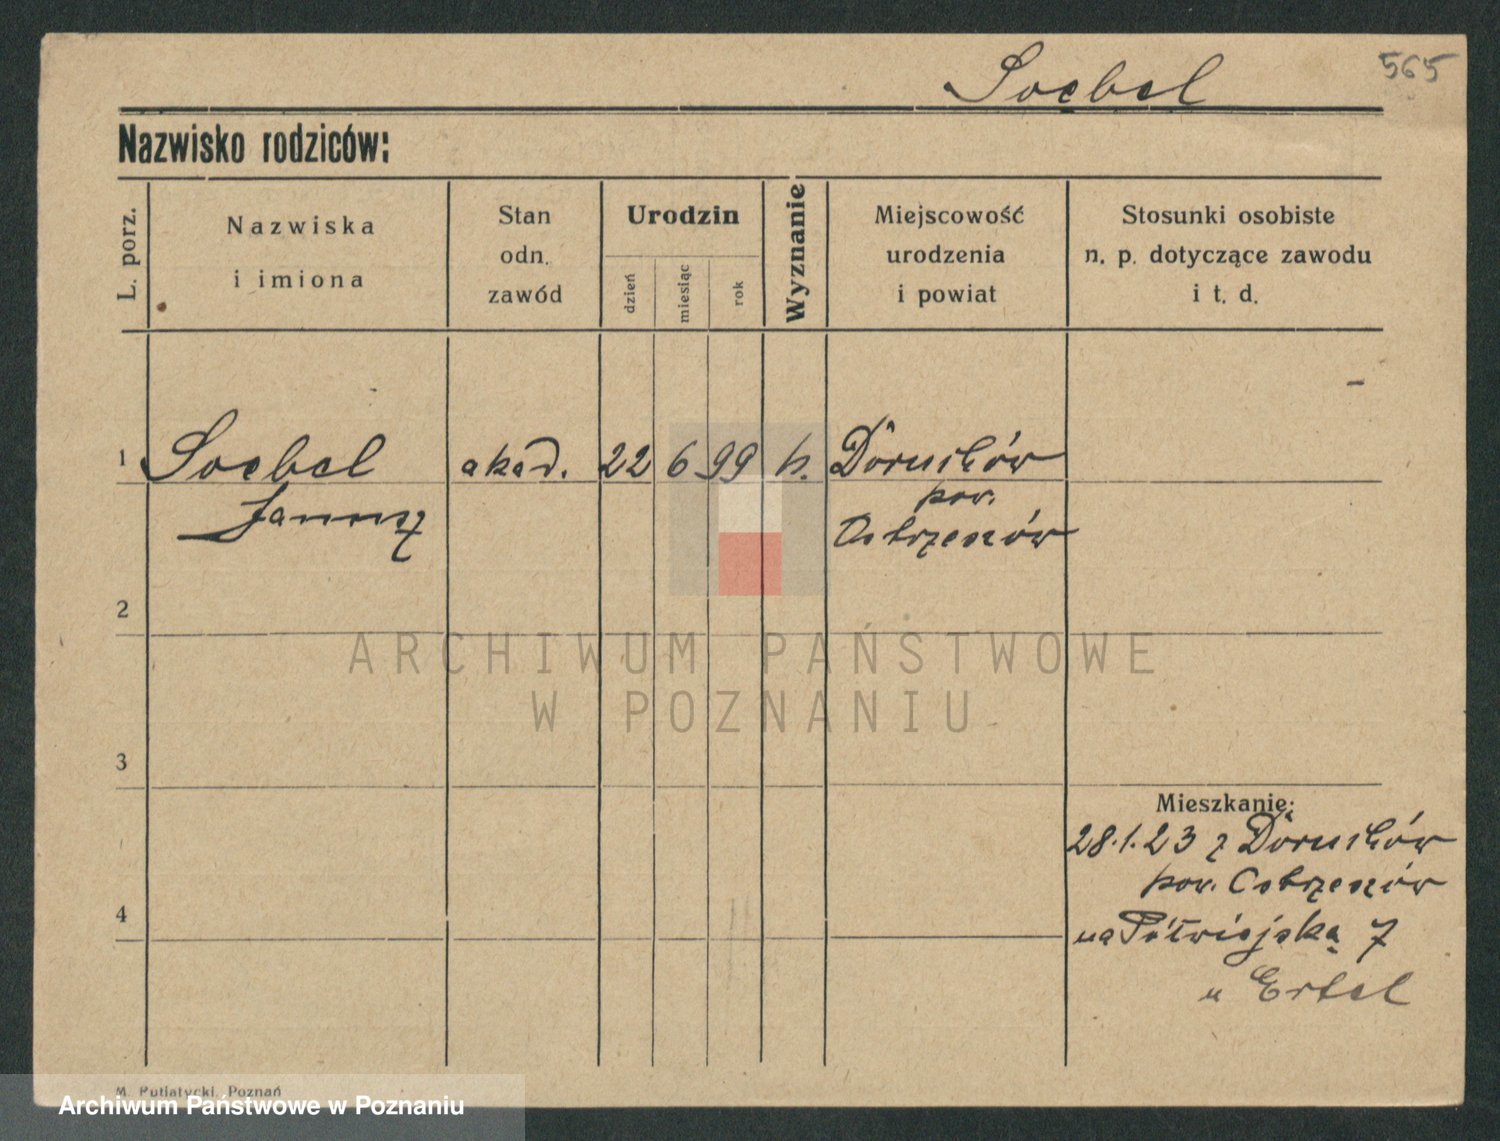 565
Soebel
Nazwisko rodziców:
L. porz.
Nazwiska
i imiona
Stan
odn.
zawód
Urodzin
dzień
miesiąc
rok
Wyznanie
Miejscowość
urodzenia
i powiat
Stosunki osobiste
n. p. dotyczące zawodu
i t. d.
1 Soebel akad. 22 6 99 k. Doruchów
Janusz pow.
Ostrzeszów
2
3
4
Mieszkanie:
28.1.23 z Doruchów
pow. Ostrzeszów
na Półwiejską 7
u Ertel
M. Putiatycki, Poznań
ARCHIWUM PAŃSTWOWE
W POZNANIU
Archiwum Państwowe w Poznaniu